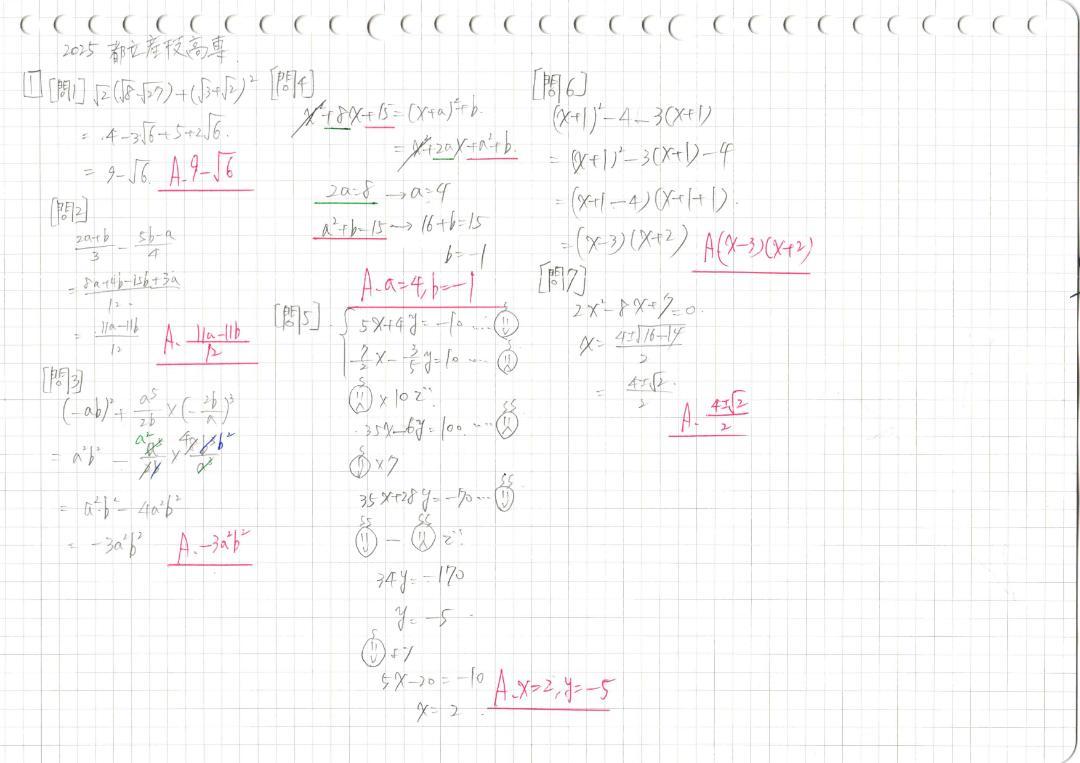 2025 都立産技高専
1 [問1] √2(√8-√27)+(√3+√2)²
= 4-3√6+5+2√6
= 9-√6 A. 9-√6
[問2]
(2a+b)/3 - (5b-a)/4
= (8a+4b-15b+3a)/12
= (11a-11b)/12 A. (11a-11b)/12
[問3]
(-ab)² + a⁵/2b × (-2b/a)³
= a²b² -
= a²b² - 4a²b²
= -3a²b² A. -3a²b²
[問4]
x²+8x+15=(x+a)²+b
= x²+2ax+a²+b
2a=8 → a=4
a²+b=15 → 16+b=15
b=-1
A. a=4, b=-1
[問5]
5x+4y=-10 …
7/2x - 3/5y=10 …
×10で
35x-6y=100 …
×7
35x+28y=-70 …
- で
34y=-170
y=-5
より
5x-20=-10
x=2 A. x=2, y=-5
[問6]
(x+1)²-4-3(x+1)
= (x+1)²-3(x+1)-4
= (x+1-4)(x+1+1)
= (x-3)(x+2) A. (x-3)(x+2)
[問7]
2x²-8x+7=0
x= (4±√16-14)/2
= (4±√2)/2
A. (4±√2)/2